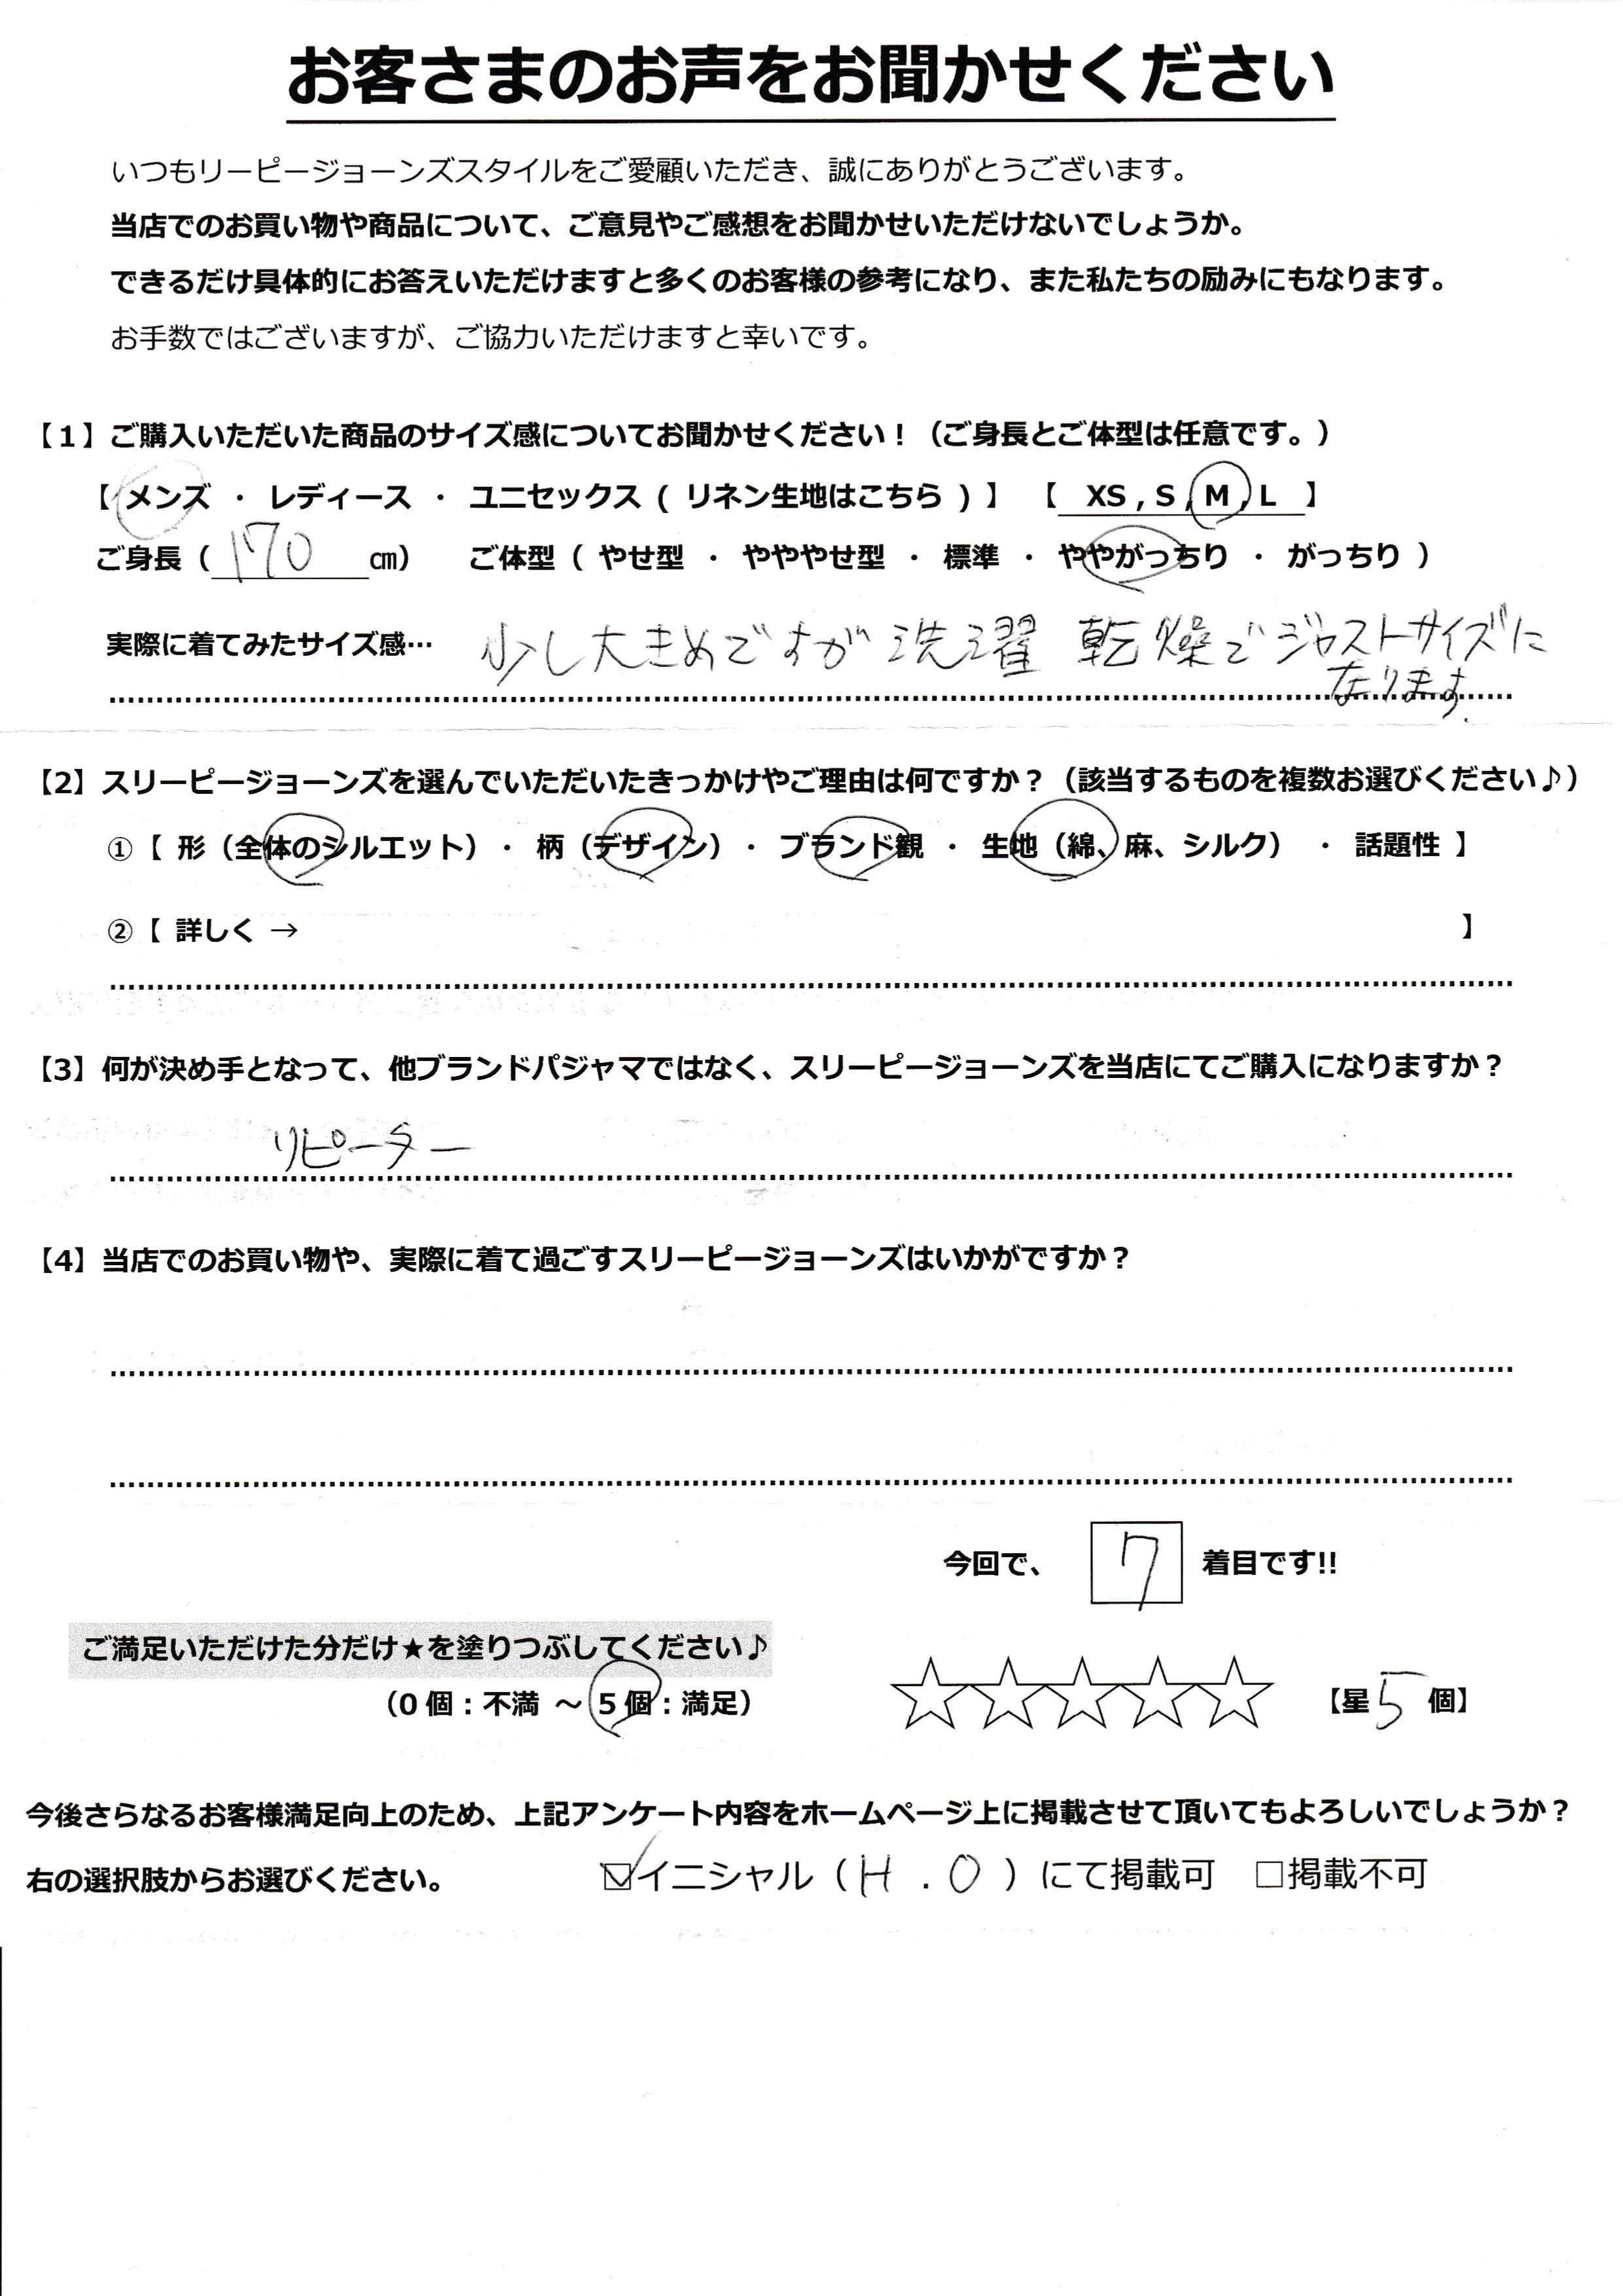 お客さまのお声をお聞かせください
いつもリーピージョーンズスタイルをご愛顧いただき、誠にありがとうございます。
当店でのお買い物や商品について、ご意見やご感想をお聞かせいただけないでしょうか。
できるだけ具体的にお答えいただけますと多くのお客様の参考になり、また私たちの励みにもなります。
お手数ではございますが、ご協力いただけますと幸いです。
【1】ご購入いただいた商品のサイズ感についてお聞かせください！（ご身長とご体型は任意です。）
【 メンズ ・ レディース ・ ユニセックス ( リネン生地はこちら ) 】 【 XS , S , M , L 】
ご身長（ 170 ㎝） ご体型（ やせ型 ・ やややせ型 ・ 標準 ・ ややがっちり ・ がっちり ）
実際に着てみたサイズ感… 少し大きめですが 洗濯 乾燥でジャストサイズに
なります.
【2】スリーピージョーンズを選んでいただいたきっかけやご理由は何ですか？（該当するものを複数お選びください♪）
①【 形（全体のシルエット）・ 柄（デザイン）・ ブランド観 ・ 生地（綿、麻、シルク） ・ 話題性 】
②【 詳しく → 】
【3】何が決め手となって、他ブランドパジャマではなく、スリーピージョーンズを当店にてご購入になりますか？
リピーター
【4】当店でのお買い物や、実際に着て過ごすスリーピージョーンズはいかがですか？
今回で、 7 着目です!!
ご満足いただけた分だけ★を塗りつぶしてください♪
（0 個：不満 ～ 5 個：満足） ☆☆☆☆☆ 【星 5 個】
今後さらなるお客様満足向上のため、上記アンケート内容をホームページ上に掲載させて頂いてもよろしいでしょうか？
右の選択肢からお選びください。 ☑イニシャル（ H . O ）にて掲載可 □掲載不可